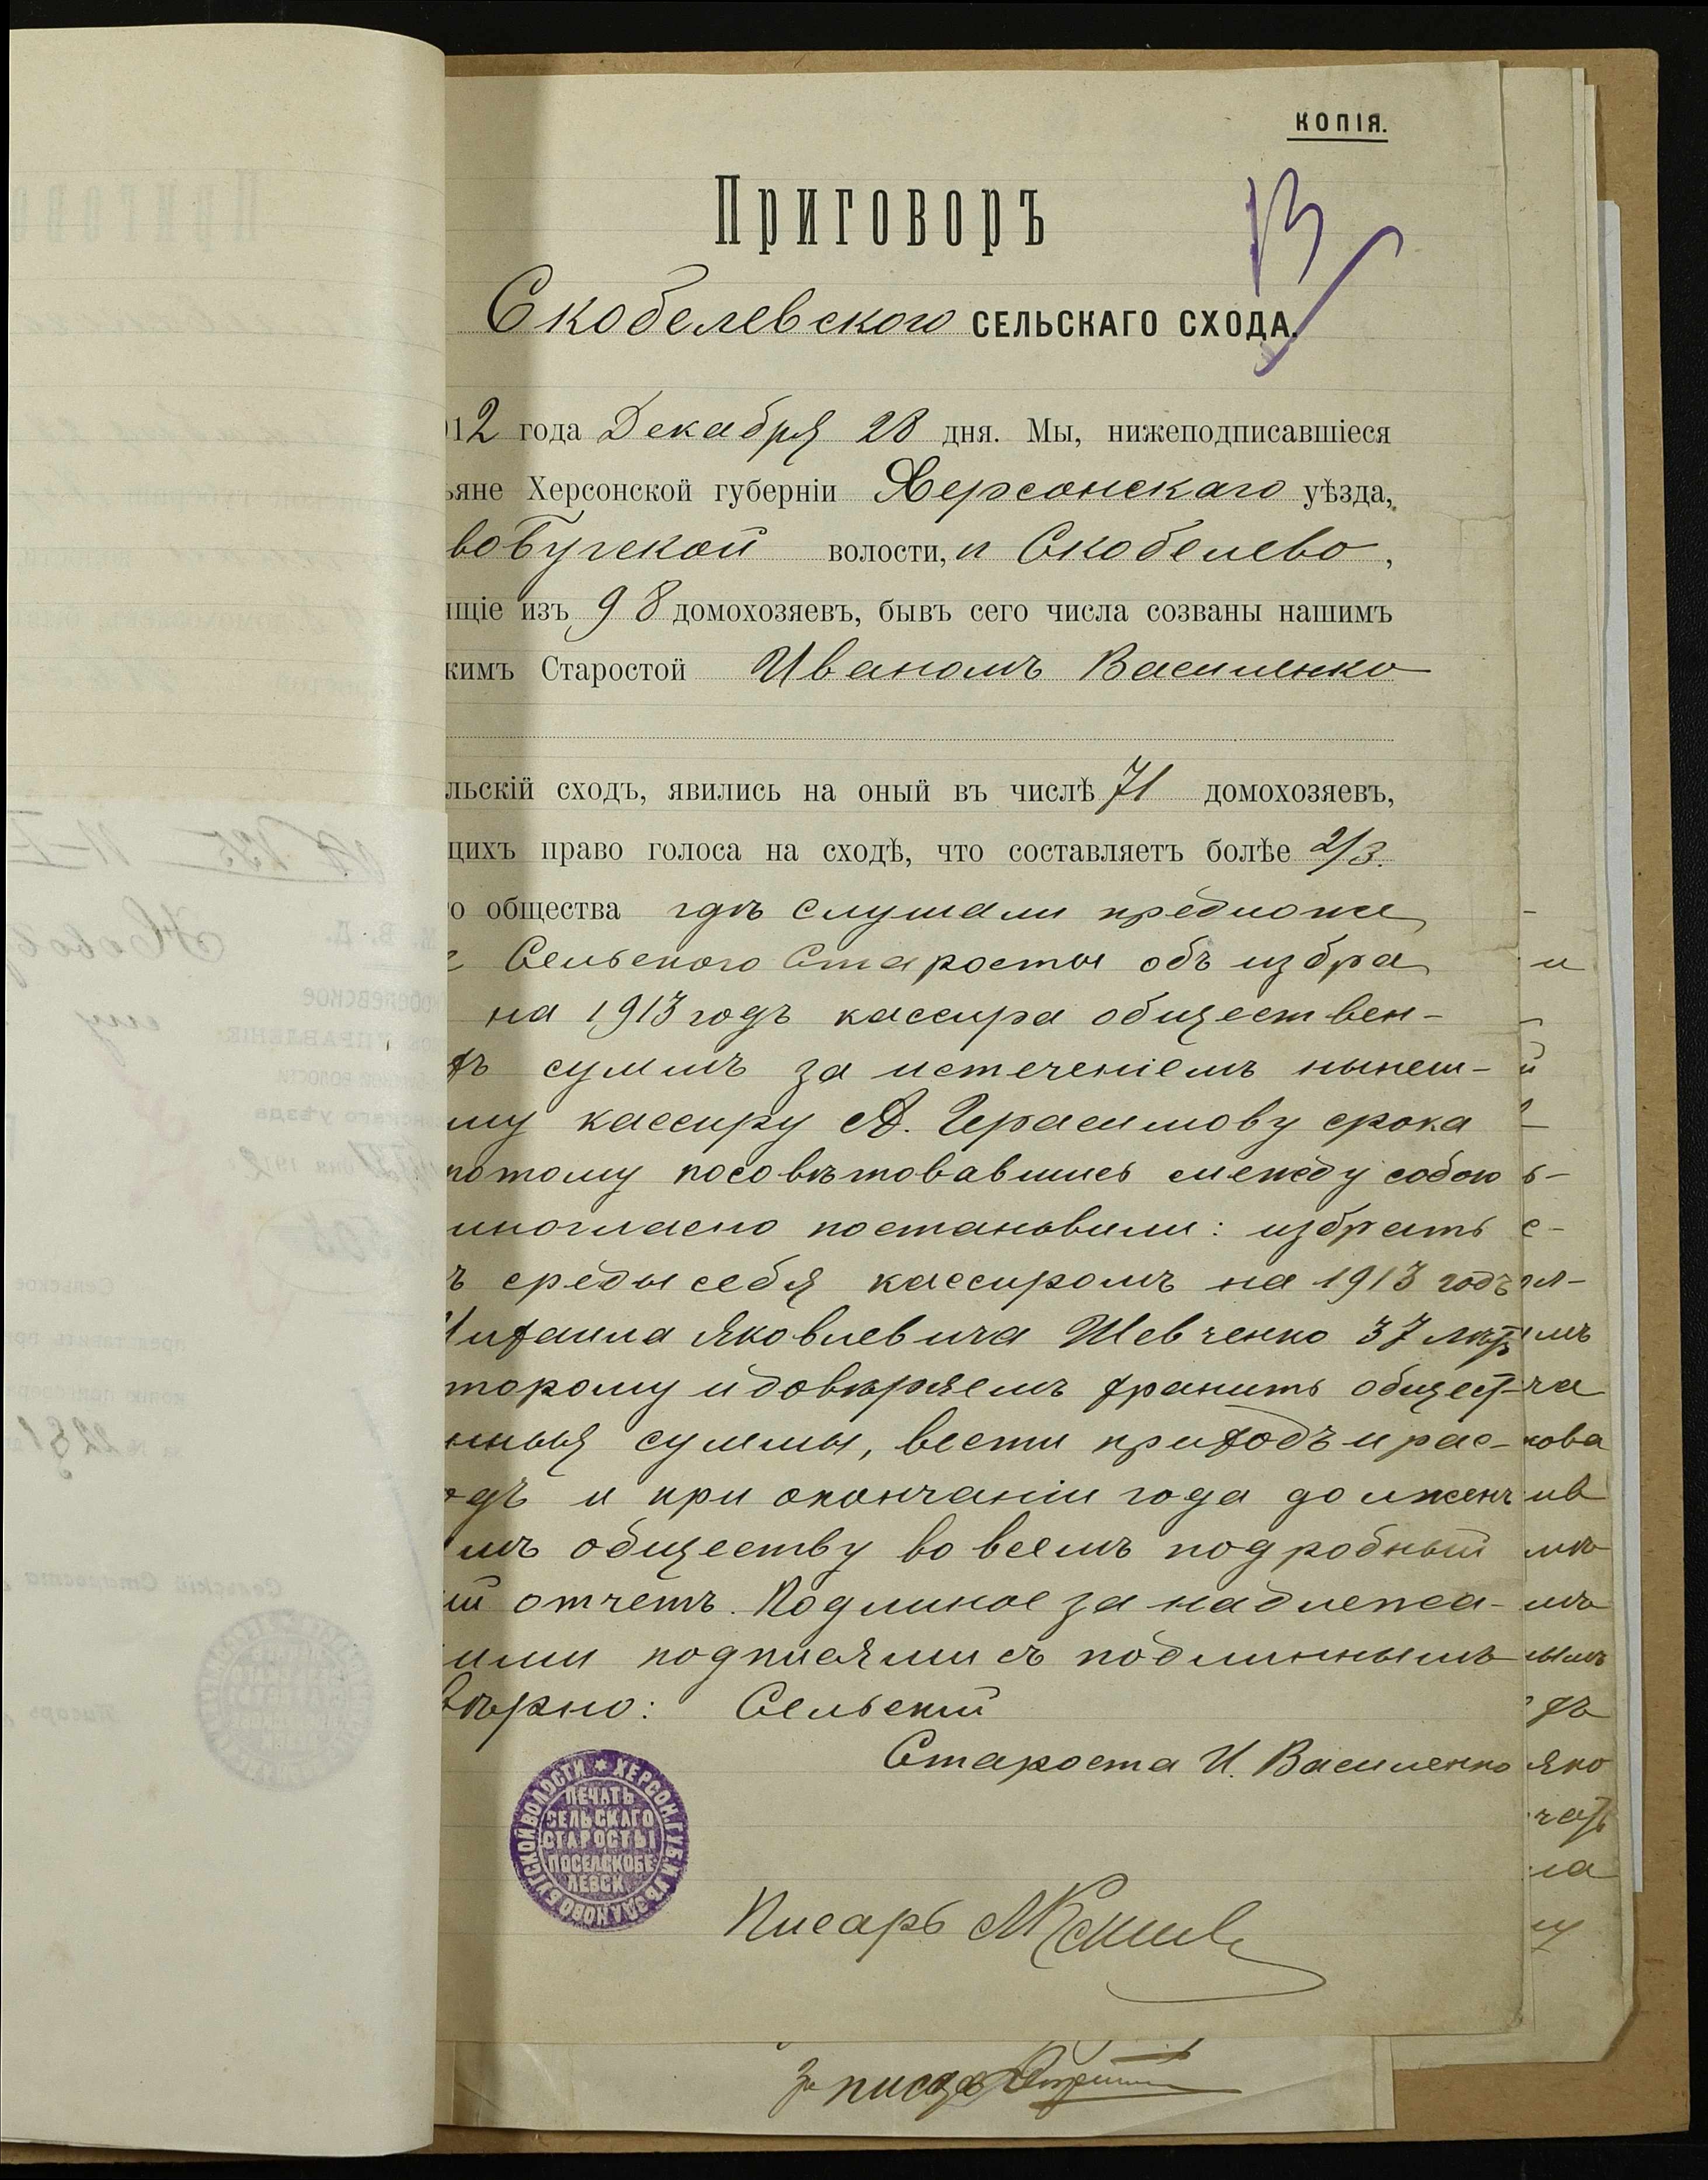 КОПІЯ.
Приговоръ
13
Скобелевского СЕЛЬСКАГО СХОДА.
912 года Декабря 28 дня. Мы, нижеподписавшіеся
ьяне Херсонской губерніи Херсонскаго уѣзда,
воБугской волости, п Скобелево,
ящіе изъ 98 домохозяевъ, бывъ сего числа созваны нашимъ
кимъ Старостой Иваномъ Василенко
льскій сходъ, явились на оный въ числѣ 71 домохозяевъ,
щихъ право голоса на сходѣ, что составляетъ болѣе 2/3.
го общества гдѣ слушали предложе
е Сельского Старосты объ избра
на 1913 годъ кассира обществен-
хъ суммъ за истеченіемъ нынеш-
му кассиру А. Герасимову срока
потому посовѣтовавшись между собою
иногласно постановили: избрать
ъ среды себя кассиромъ на 1913 годъ
Михаила Яковлевича Шевченко 37 лѣтъ
торому и довѣряемъ хранить общест-
нныя суммы, вести приходъ и рас-
одъ и при окончаніи года долженъ
мъ обществу во всемъ подробный
ий отчетъ. Подлиное за надлежа-
ими подписями съ подлиннымъ
вѣрно: Сельскій
Староста И. Василенко
ХЕРСОН. ГУБ. И УѢЗДА НОВОБУГСКОЙ ВОЛОСТИ
ПЕЧАТЬ
СЕЛЬСКАГО
СТАРОСТЫ
ПОСЕЛ. СКОБЕ
ЛЕВСК.
Писарь
За писаря